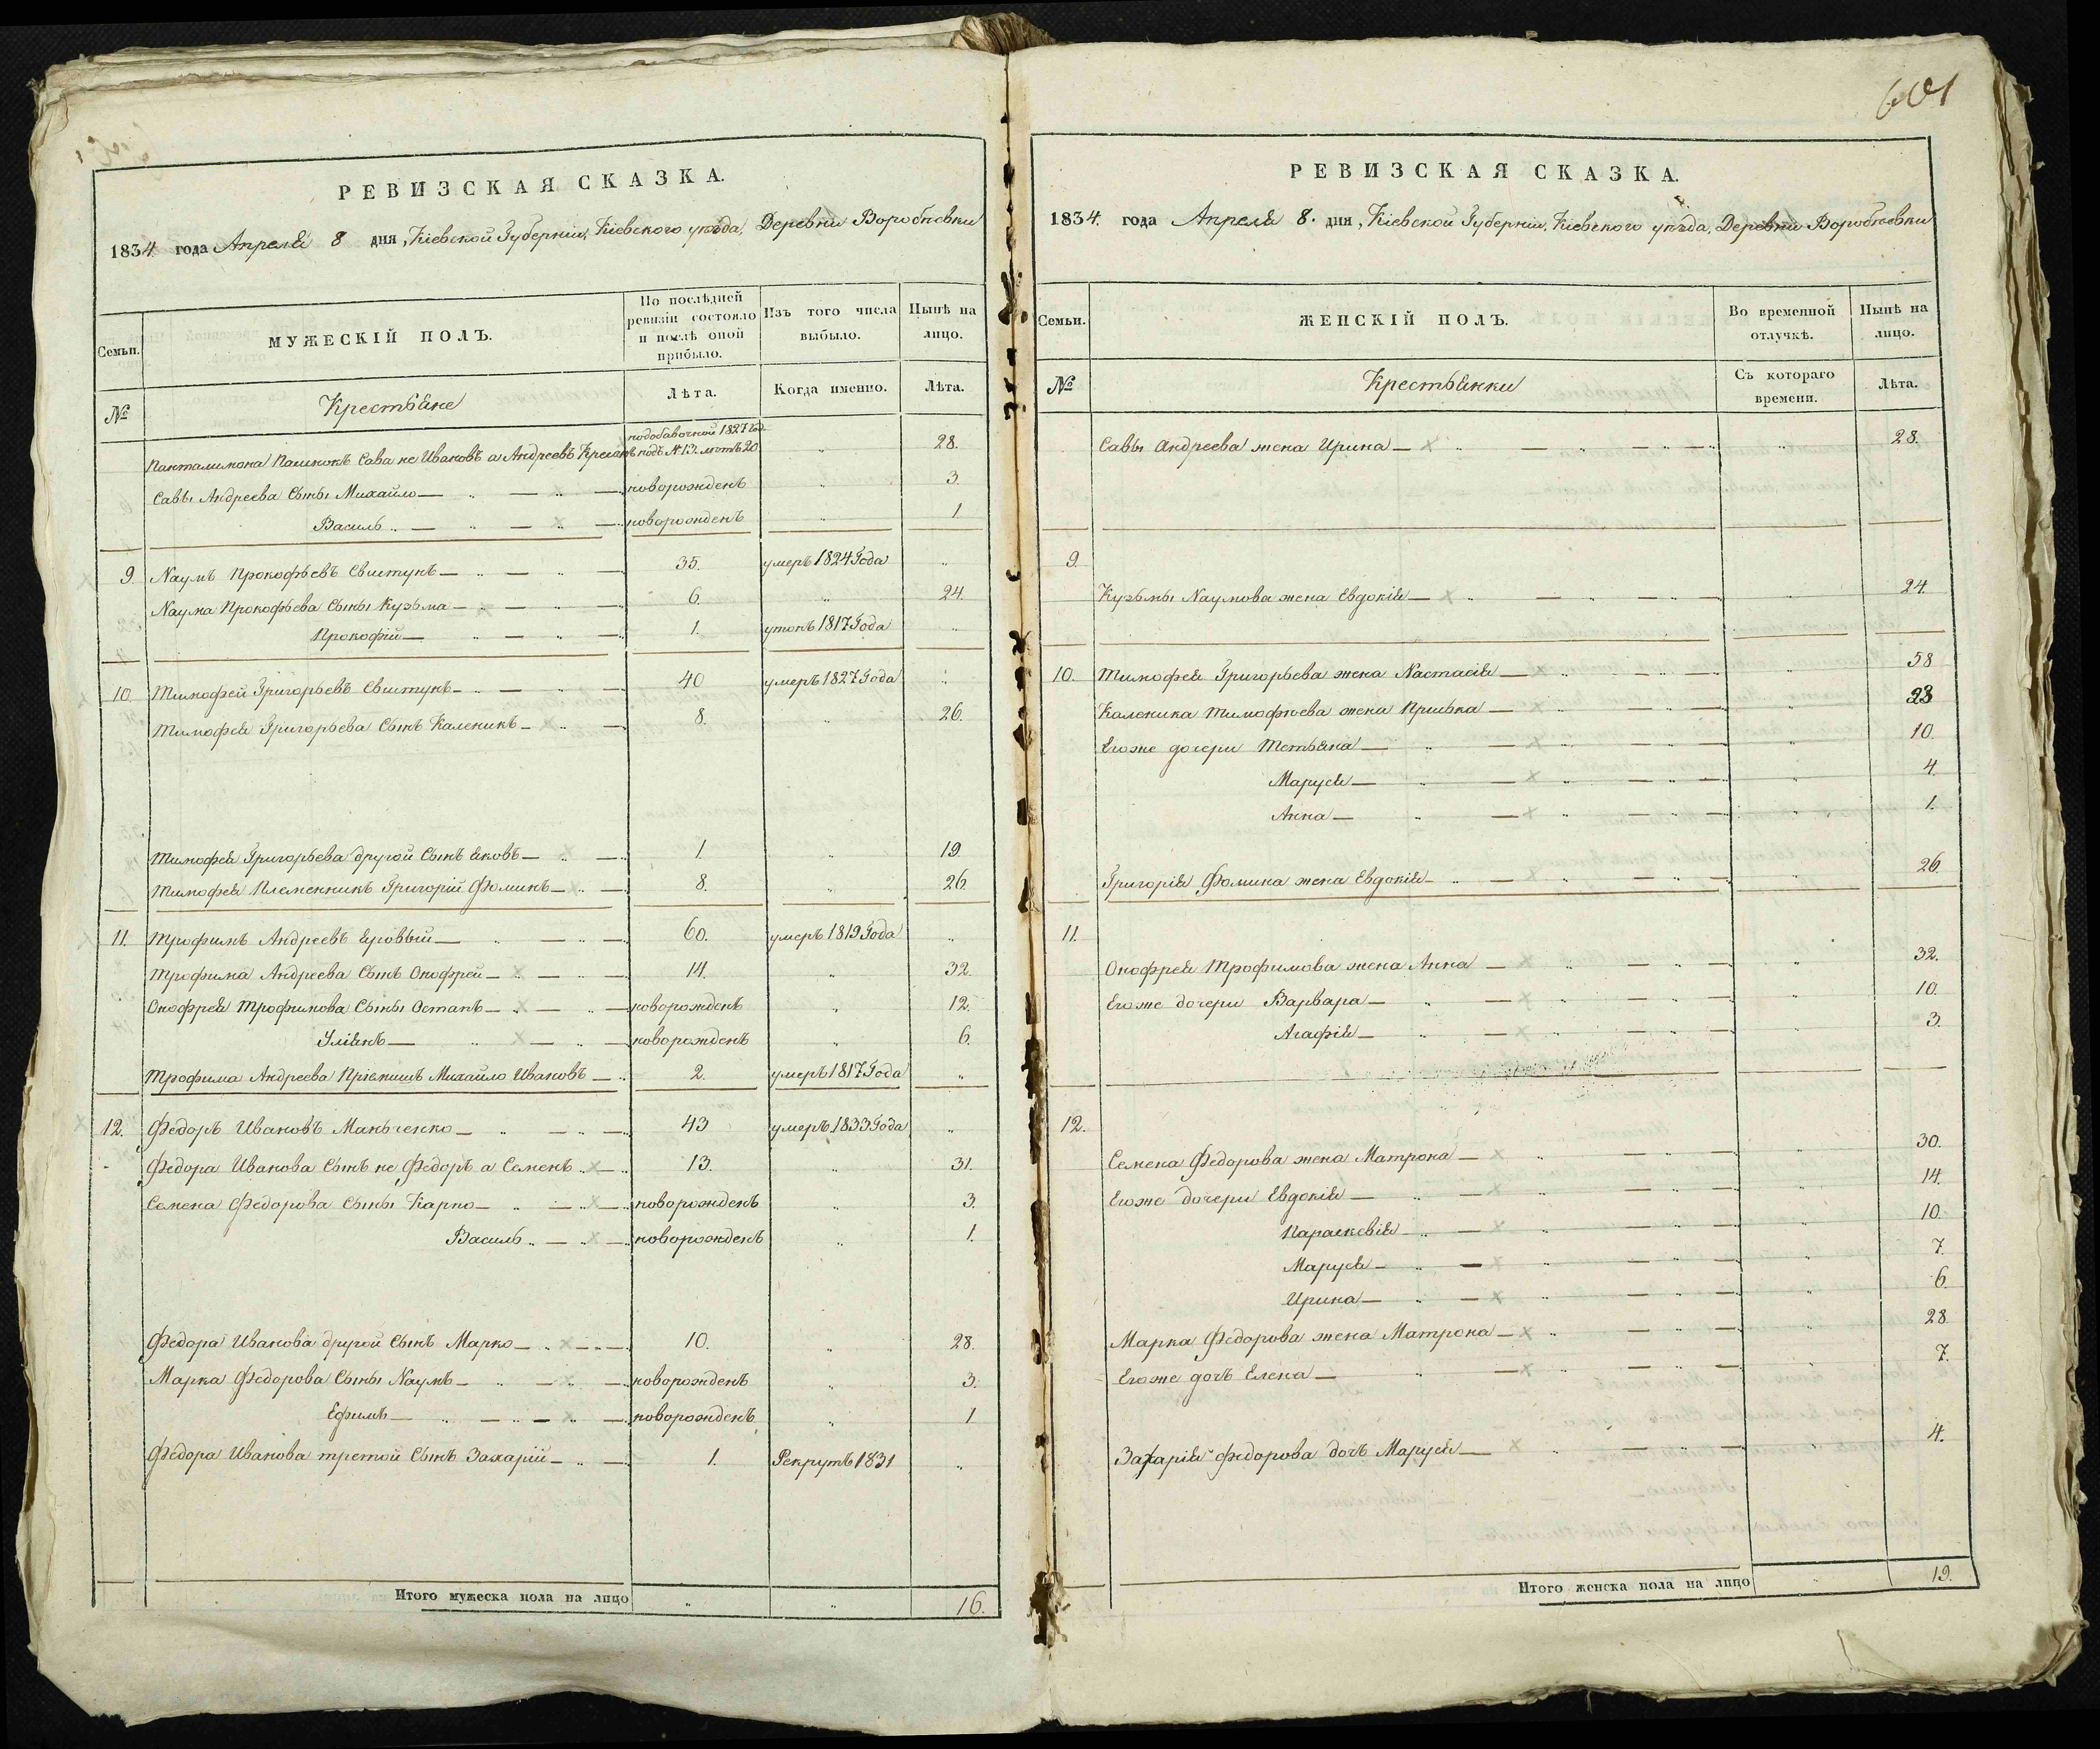 РЕВИЗСКАЯ СКАЗКА.
1834. года Апреля 8 дня, Кіевской Губерніи, Кіевского уѣзда, Деревни Воробіевки
Семьи.
МУЖЕСКІЙ ПОЛЪ.
По послѣдней ревизіи состояло и послѣ оной прибыло.
Изъ того числа выбыло.
Нынѣ на лицо.
№
Крестьяне
Лѣта.
Когда именно.
Лѣта.
Панталимона Сава не Ивановъ а Андреевъ подобавочной 1827 год. подъ № 13. лѣтъ 20 „ 28.
Савы Андреева Сыны Михайло новорожденъ „ 3.
Василь новорожденъ „ 1.
9 Наумъ Прокофьевъ Свистунъ 35. умеръ 1824 Года „
Наума Прокофьева Сыны Кузьма 6. „ 24.
Прокофій 1. 1817 Года „
10. Тимофей Григорьевъ Свистунъ 40 умеръ 1827 Года „
Тимофея Григорьева Сынъ Каленикъ 8. „ 26.
Тимофея Григорьева другой Сынъ Яковъ 1. „ 19
Тимофея Племенникъ Григорій Фоминъ 8. „ 26.
11. Трофимъ Андреевъ 60. умеръ 1819 Года „
Трофима Андреева Сынъ Онофрей 14. „ 32.
Онофрея Трофимова Сыны Остапъ новорожденъ „ 12.
Уліянъ новорожденъ „ 6.
Трофима Андреева Пріемишъ Михайло Ивановъ 2. умеръ 1817 Года „
12. Федоръ Ивановъ Маньченко 43 умеръ 1833 Года „
Федора Иванова Сынъ не Федоръ а Семенъ 13. „ 31.
Семена Федорова Сыны Карпо новорожденъ „ 3.
Василь новорожденъ „ 1.
Федора Иванова другой Сынъ Марко 10. „ 28.
Марка Федорова Сыны Наумъ новорожденъ „ 3.
Ефимъ новорожденъ „ 1
Федора Иванова третой Сынъ Захарій 1. Рекрутъ 1831 „
Итого мужеска пола на лицо „ „ 16.
601
РЕВИЗСКАЯ СКАЗКА.
1834. года Апреля 8. дня, Кіевской Губерніи, Кіевского уѣзда, Деревни Воробіевки
Семьи.
ЖЕНСКІЙ ПОЛЪ.
Во временной отлучкѣ.
Нынѣ на лицо.
№
Крестьянки
Съ котораго времени.
Лѣта.
Савы Андреева жена Ирина „ 28.
9.
Кузьмы Наумова жена Евдокія „ 24.
10. Тимофея Григорьева жена Настасія „ 58
Каленика Тимофѣева жена Приська „ 23
Егоже дочери Тетьяна „ 10.
Маруся „ 4.
Анна „ 1.
Григорія Фомина жена Евдокія „ 26
11.
Онофрея Трофимова жена Анна „ 32.
Егоже дочери Варвара „ 10.
Агафія „ 3.
12.
Семена Федорова жена Матрона „ 30.
Егоже дочери Евдокія „ 14.
Параскевія „ 10.
Маруся „ 7.
Ирина „ 6.
Марка Федорова жена Матрона „ 28
Егоже дочь Елена „ 7.
Захарія Федорова дочь Маруся „ 4.
Итого женска пола на лицо „ 19.